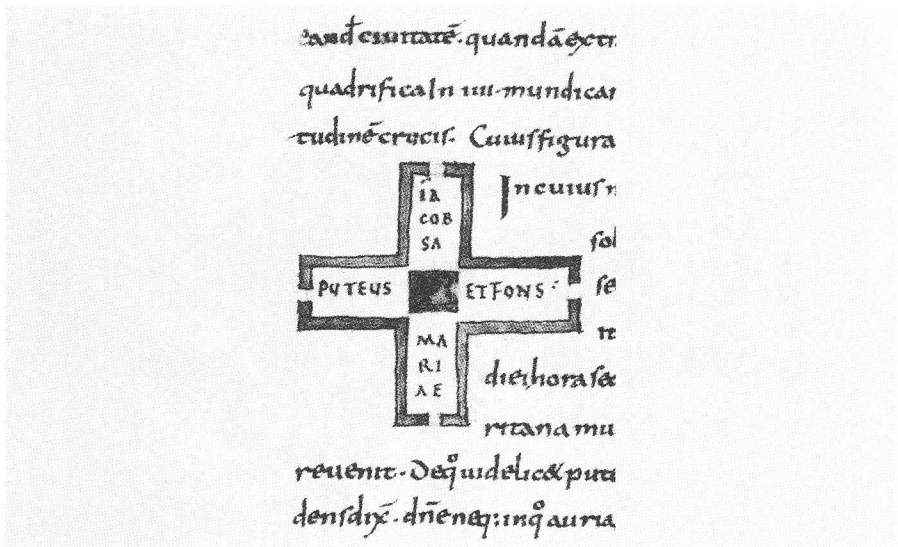 eand̄ ciuitatē· quandā extr
quadrifica In iiii· mundi car
tudinē crucis· Cuius figura
IA
COB
SA
In cuius
PUTEUS
ET FONS
MA
RI
AE
sol
se
die hora se
ritana mu
reuenit· De qº uidelic& pute
dens dix̄· dn̄e neq; in qº auria